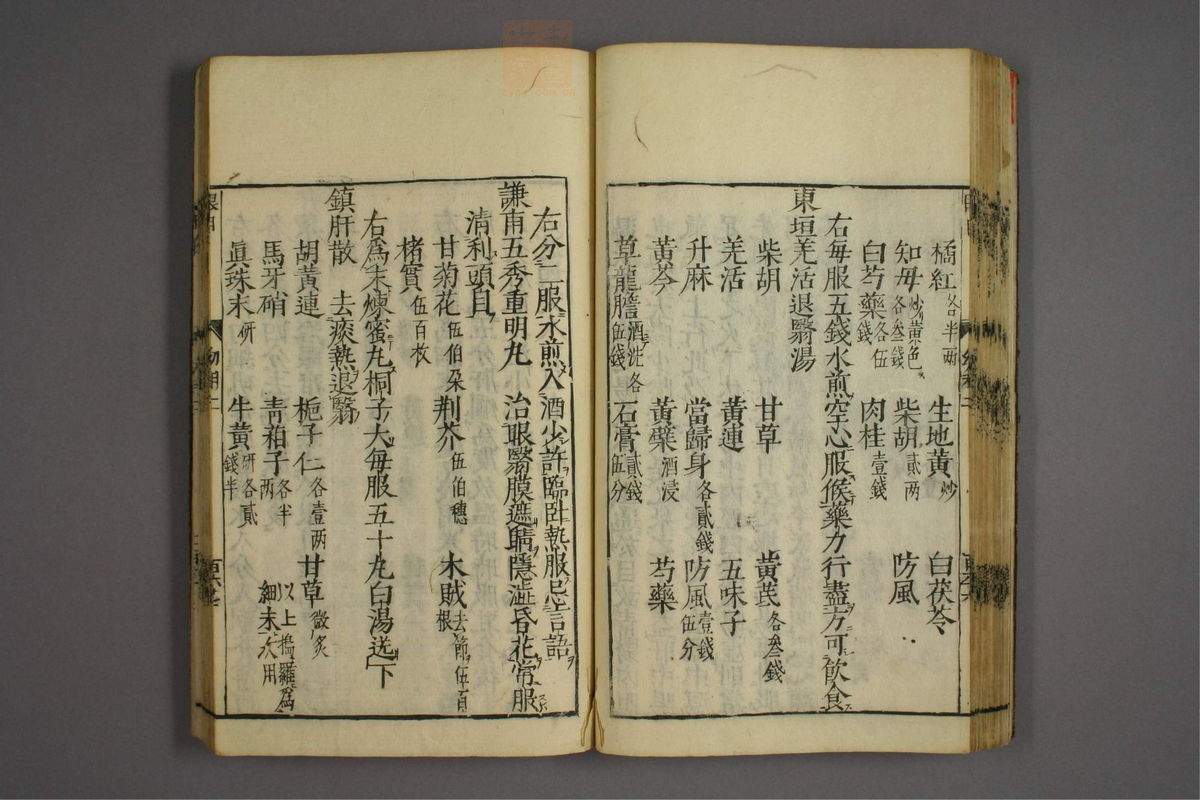 橘紅各半兩 生地黃炒 白茯苓
知母炒黃色各叁錢 柴胡貳兩 防風
白芍藥各伍錢 肉桂壹錢
右每服五錢水煎空心服候藥力行盡方可飲食
東垣羌活退翳湯
柴胡 甘草 黃芪各叁錢
羌活 黃連 五味子
升麻 當歸身各貳錢 防風壹錢伍分
黃芩 黃蘗酒浸 芍藥
草龍膽酒洗各伍錢 石膏貳錢伍分
右分二服水煎入酒少許臨卧熱服忌言語
謙甫五秀重明丸 治眼翳膜遮睛隱澁昏花常服
清利頭目
甘菊花伍伯朵 荆芥伍伯穗 木賊去節伍百根
楮實伍百枚
右爲末煉蜜丸桐子大每服五十丸白湯送下
鎮肝散 去痰熱退翳
胡黃連 梔子仁各壹兩 甘草微炙
馬牙硝 靑葙子各半兩 以上搗羅爲細末次用
眞珠末研 牛黃研各貳錢半